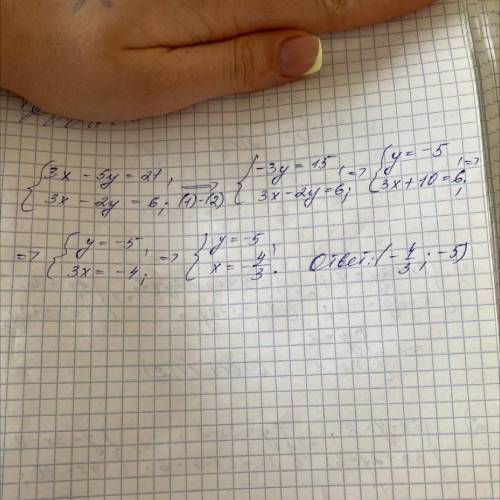 {3x - 5y = 21, 3x - 2y = 6; (1)-(2) => {-3y = 15, 3x - 2y = 6; => {y = -5, 3x + 10 = 6; =>
=> {y = -5, 3x = -4; => {y = -5, x = -4/3. Ответ: (-4/3; -5)